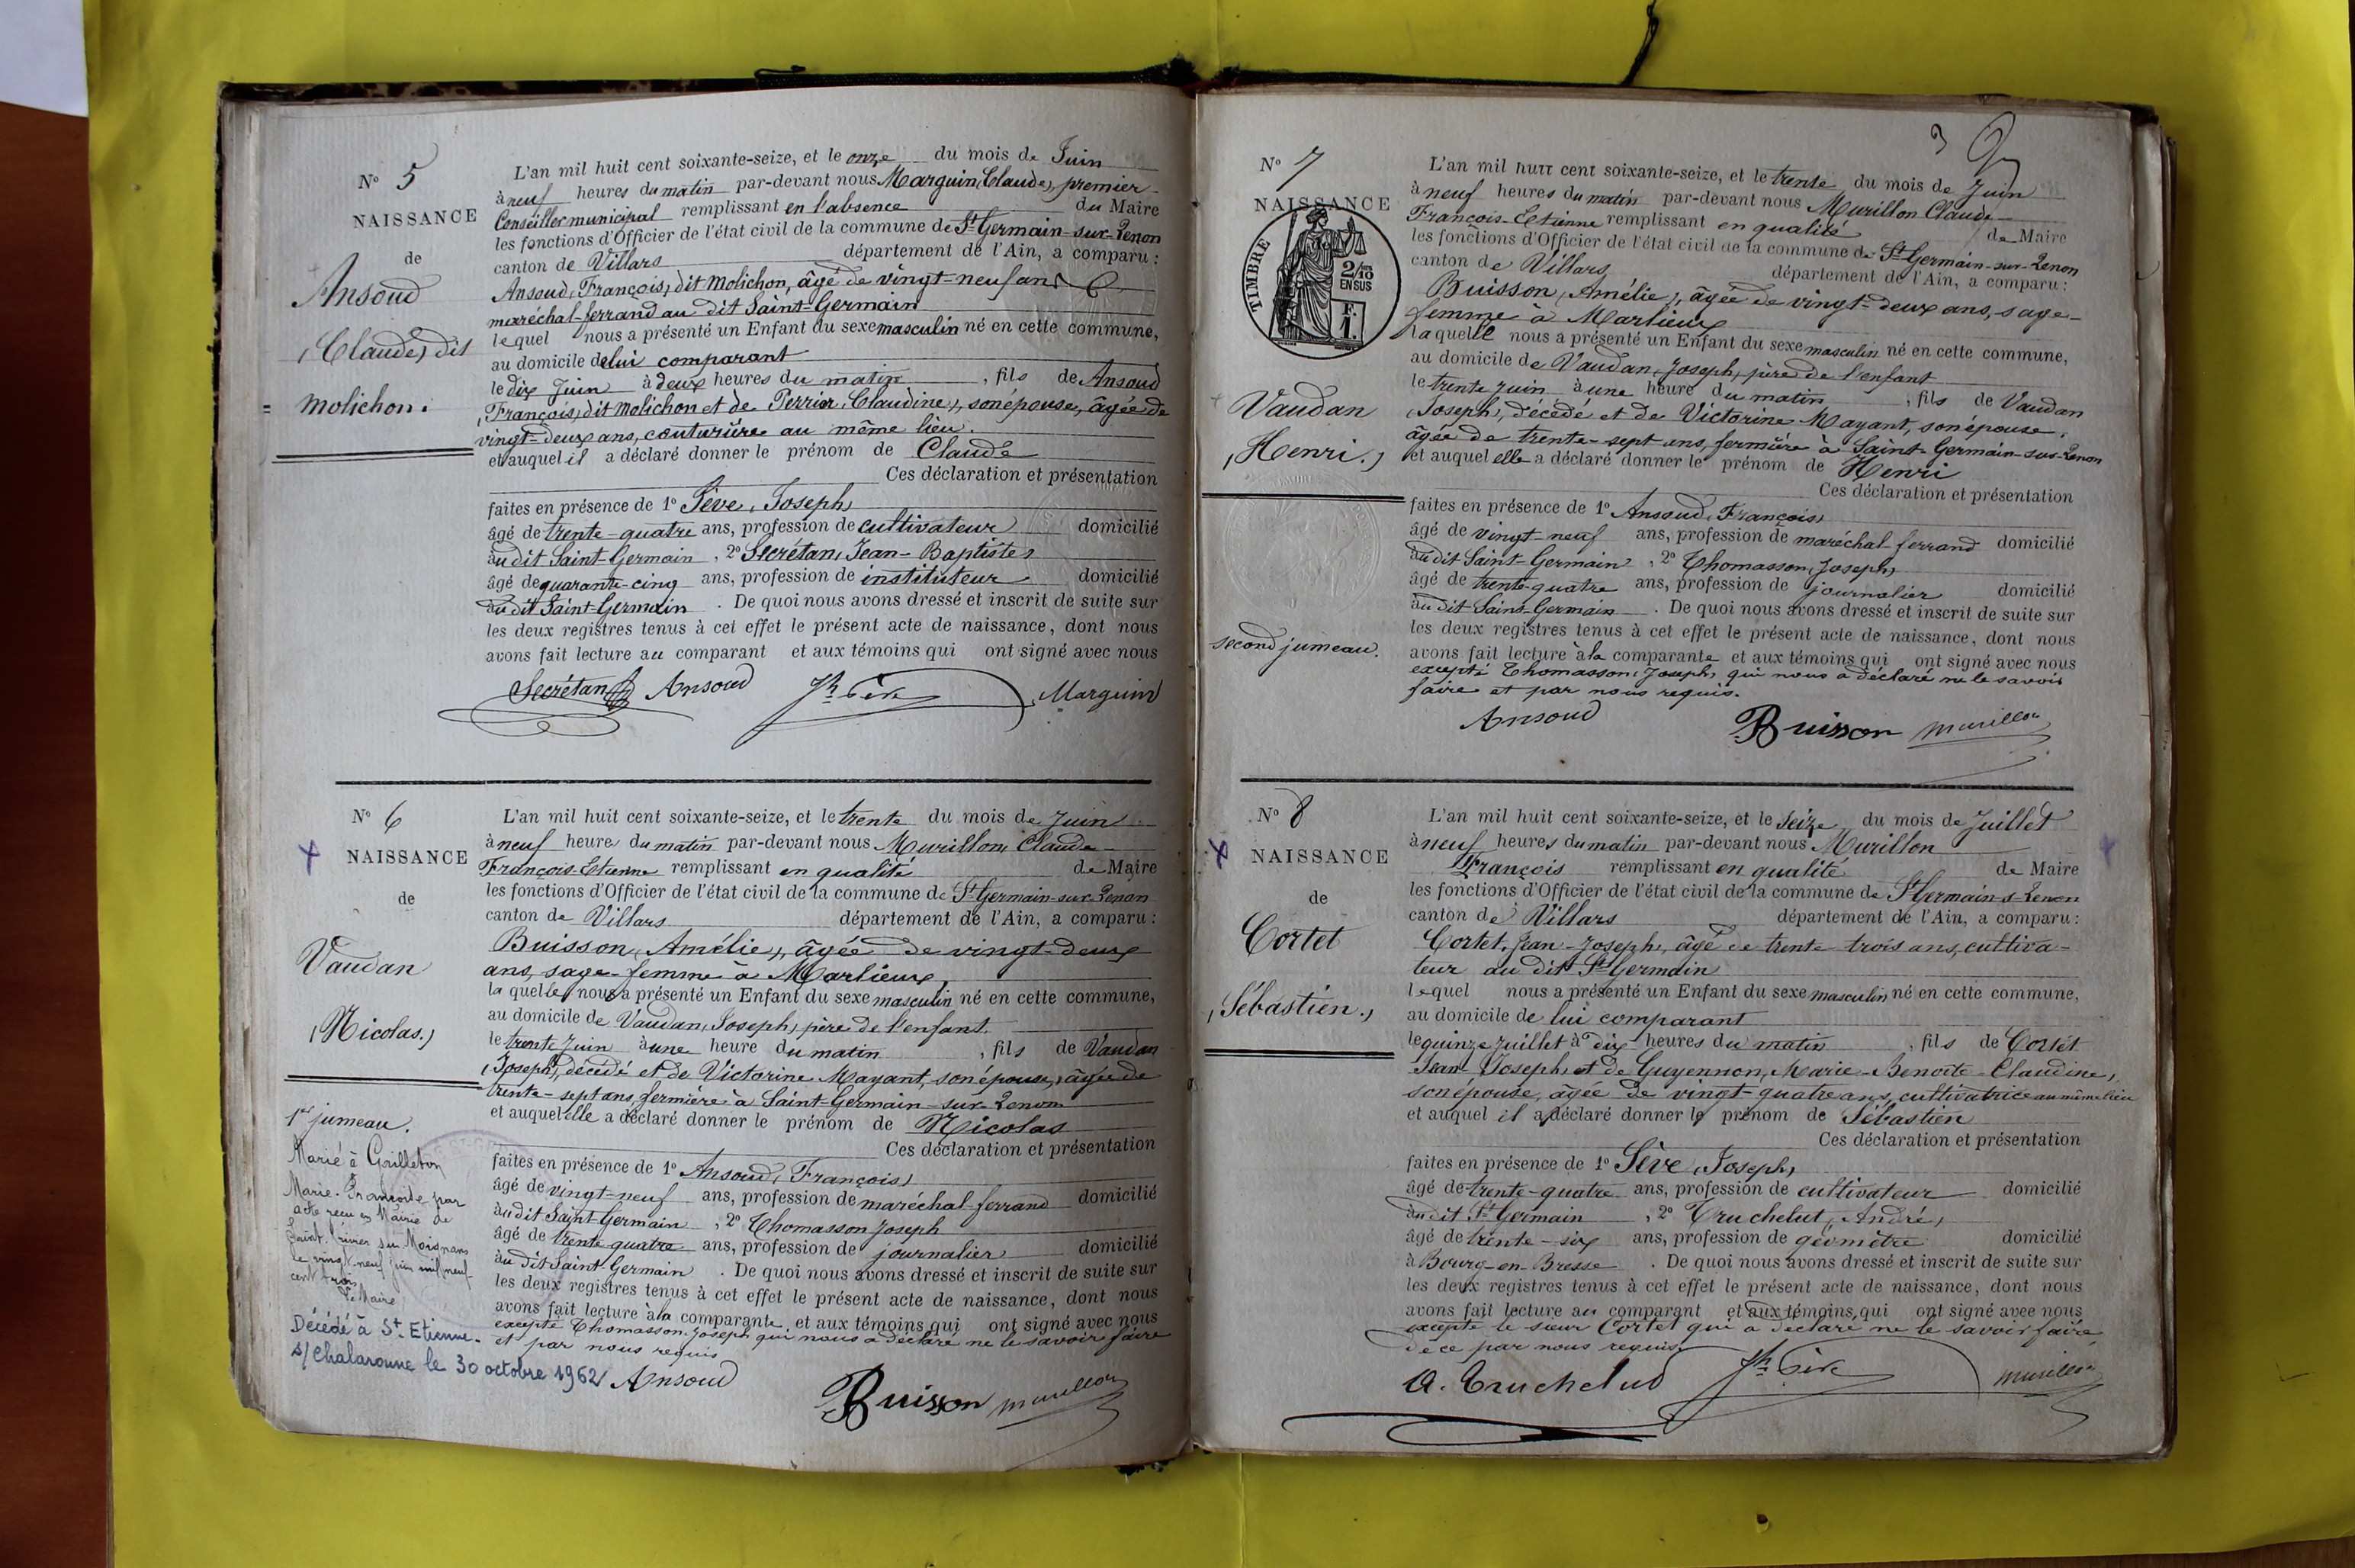 N° 5
NAISSANCE
de
Ansoud
(Claude) dit
molichon.
L'an mil huit cent soixante-seize, et le onze du mois de Juin
à neuf heures du matin par-devant nous Marguin (Claude), premier
Conseiller municipal remplissant en l'absence du Maire
les fonctions d'Officier de l'état civil de la commune de St Germain-sur-Renon
canton de Villars département de l'Ain, a comparu :
Ansoud, François, dit Molichon, âgé de vingt-neuf ans
maréchal-ferrand au dit Saint-Germain
lequel nous a présenté un Enfant du sexe masculin né en cette commune,
au domicile de lui comparant
le dix Juin à deux heures du matin, fils de Ansoud
(François) dit Molichon et de Perrier (Claudine), son épouse, âgée de
vingt-deux ans, couturière au même lieu.
et auquel il a déclaré donner le prénom de Claude
Ces déclaration et présentation
faites en présence de 1° Sève, Joseph,
âgé de trente-quatre ans, profession de cultivateur domicilié
au dit Saint-Germain, 2° Secrétan, Jean-Baptiste,
âgé de quarante-cinq ans, profession de instituteur domicilié
au dit Saint-Germain. De quoi nous avons dressé et inscrit de suite sur
les deux registres tenus à cet effet le présent acte de naissance, dont nous
avons fait lecture au comparant et aux témoins qui ont signé avec nous
Secrétan Ansoud Jh Sève Marguin
N° 6
NAISSANCE
de
Vaudan
(Nicolas.)
1er jumeau.
Marié à Grilleton
Marie-Françoise par
acte reçu en Mairie de
Saint-Trivier sur Moignans
le vingt-neuf juin mil neuf
cent trois
Le Maire
Décédé à St. Etienne-
s/ Chalaronne le 30 octobre 1962
L'an mil huit cent soixante-seize, et le trente du mois de Juin
à neuf heure du matin par-devant nous Murillon, Claude-
François-Etienne remplissant en qualité de Maire
les fonctions d'Officier de l'état civil de la commune de St Germain-sur-Renon
canton de Villars département de l'Ain, a comparu :
Buisson, Amélie, âgée de vingt-deux
ans, sage-femme à Marlieux,
la quelle nous a présenté un Enfant du sexe masculin né en cette commune,
au domicile de Vaudan, Joseph, père de l'enfant.
le trente Juin à une heure du matin, fils de Vaudan
(Joseph), décédé et de Victorine Mayant, son épouse, âgée de
trente-sept ans, fermière à Saint-Germain-sur-Renon
et auquel elle a déclaré donner le prénom de Nicolas
Ces déclaration et présentation
faites en présence de 1° Ansoud, François,
âgé de vingt-neuf ans, profession de maréchal-ferrand domicilié
au dit Saint-Germain, 2° Thomasson Joseph
âgé de trente quatre ans, profession de journalier domicilié
au dit Saint-Germain. De quoi nous avons dressé et inscrit de suite sur
les deux registres tenus à cet effet le présent acte de naissance, dont nous
avons fait lecture à la comparante et aux témoins qui ont signé avec nous
excepté Thomasson Joseph qui nous a déclaré ne le savoir faire
et par nous requis
Ansoud Buisson Murillon
3
N° 7
NAISSANCE
TIMBRE
2/10
EN SUS
F.
1.
Vaudan
(Henri.)
second jumeau.
L'an mil huit cent soixante-seize, et le trente du mois de Juin
à neuf heures du matin par-devant nous Murillon Claude-
François-Etienne remplissant en qualité de Maire
les fonctions d'Officier de l'état civil de la commune de St Germain-sur-Renon
canton de Villars département de l'Ain, a comparu :
Buisson, Amélie, âgée de vingt-deux ans, sage-
femme à Marlieux
laquelle nous a présenté un Enfant du sexe masculin né en cette commune,
au domicile de Vaudan, Joseph, père de l'enfant
le trente Juin à une heure du matin, fils de Vaudan
(Joseph), décédé et de Victorine Mayant, son épouse,
âgée de trente-sept ans, fermière à Saint-Germain-sur-Renon
et auquel elle a déclaré donner le prénom de Henri
Ces déclaration et présentation
faites en présence de 1° Ansoud, François,
âgé de vingt-neuf ans, profession de maréchal-ferrand domicilié
au dit Saint-Germain, 2° Thomasson, Joseph,
âgé de trente-quatre ans, profession de journalier domicilié
au dit Saint-Germain. De quoi nous avons dressé et inscrit de suite sur
les deux registres tenus à cet effet le présent acte de naissance, dont nous
avons fait lecture à la comparante et aux témoins qui ont signé avec nous
excepté Thomasson, Joseph, qui nous a déclaré ne le savoir
faire et par nous requis.
Ansoud Buisson Murillon
N° 8
NAISSANCE
de
Cortet
(Sébastien.)
L'an mil huit cent soixante-seize, et le Seize du mois de Juillet
à neuf heures du matin par-devant nous Murillon
François remplissant en qualité de Maire
les fonctions d'Officier de l'état civil de la commune de St Germain-s-Renon
canton de Villars département de l'Ain, a comparu :
Cortet, Jean-Joseph, âgé de trente trois ans, cultiva-
teur au dit St Germain
lequel nous a présenté un Enfant du sexe masculin né en cette commune,
au domicile de lui comparant
le quinze Juillet à dix heures du matin, fils de Cortet
Jean Joseph, et de Guyennon, Marie-Benoite-Claudine,
son épouse, âgée de vingt-quatre ans, cultivatrice au même lieu
et auquel il a déclaré donner le prénom de Sébastien
Ces déclaration et présentation
faites en présence de 1° Sève, Joseph,
âgé de trente-quatre ans, profession de cultivateur domicilié
au dit St Germain, 2° Truchelut, André,
âgé de trente-six ans, profession de géomètre domicilié
à Bourg-en-Bresse. De quoi nous avons dressé et inscrit de suite sur
les deux registres tenus à cet effet le présent acte de naissance, dont nous
avons fait lecture au comparant et aux témoins, qui ont signé avec nous
excepté le sieur Cortet qui a déclaré ne le savoir faire
de ce par nous requis.
A. Truchelud Jh Sève Murillon